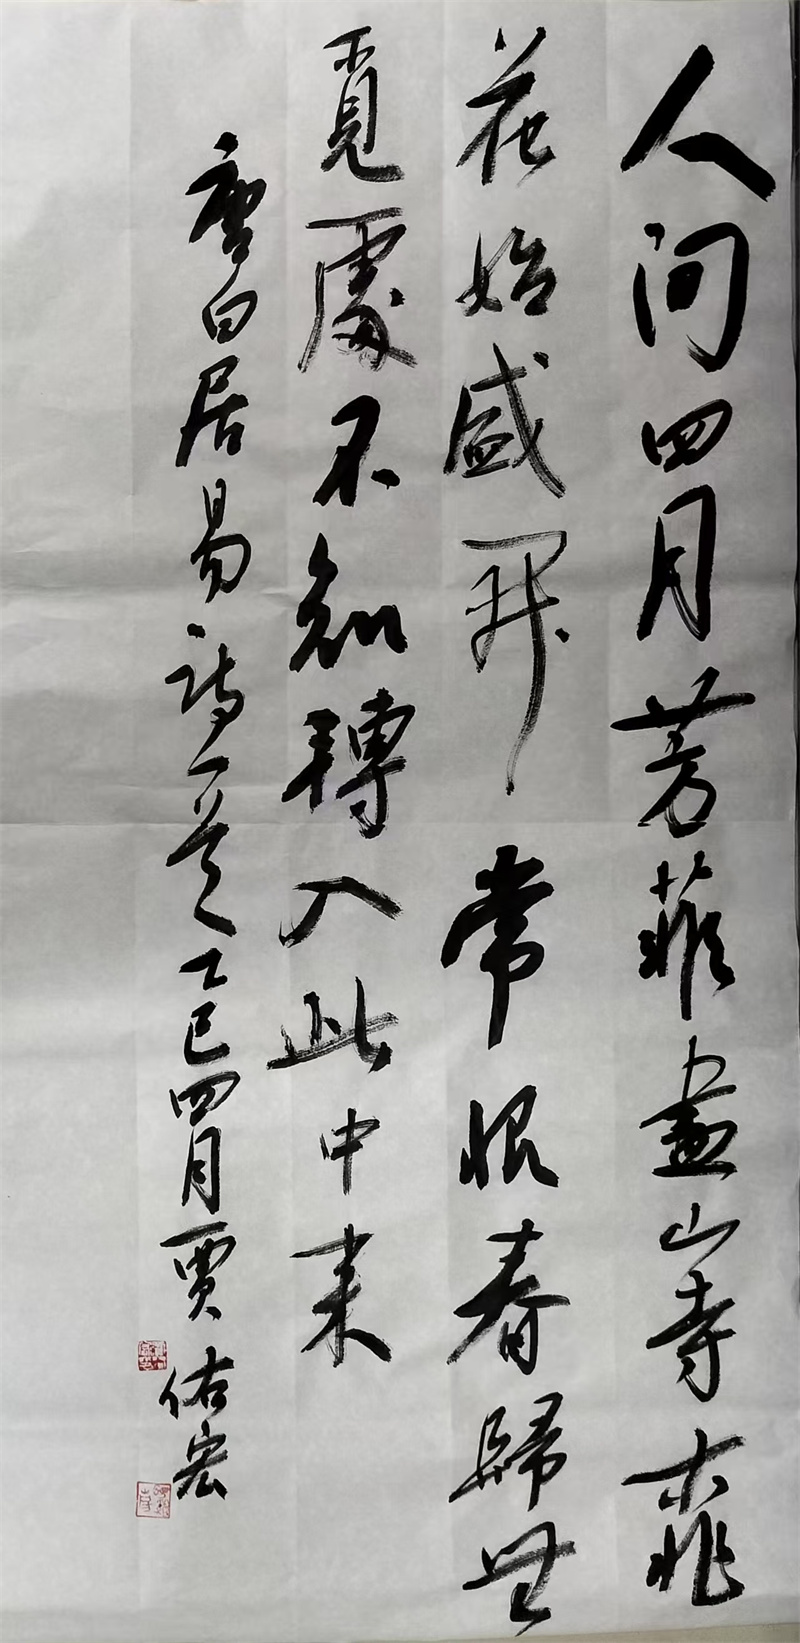 人间四月芳菲盡山寺桃
花始盛開常恨春歸無
覓處不知轉入此中来
唐白居易詩一首乙巳四月賈佑宏